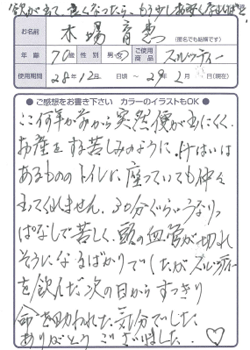 飲んでて良くなったら、もう少しお安くなればと
お名前
木場育恵
(匿名でも結構です)
年齢
70歳
性別
男・女
ご使用商品
スルッティー
使用期間
28年12月 日頃 ~ 29年2月 日(現在)
●ご感想をお書き下さい カラーのイラストもOK●
ここ何年か前から突然便が出にくく、
お産をする苦しみのように、けはいは
あるもののトイレに座っていても仲々
出てくれません。30分ぐらいうなりっ
ぱなしで苦しく、頭の血管が切れ
そうになるばかりでしたがスルッティー
を飲んだ次の日からすっきり
命を助われた気分でした
ありがとうございました。♡